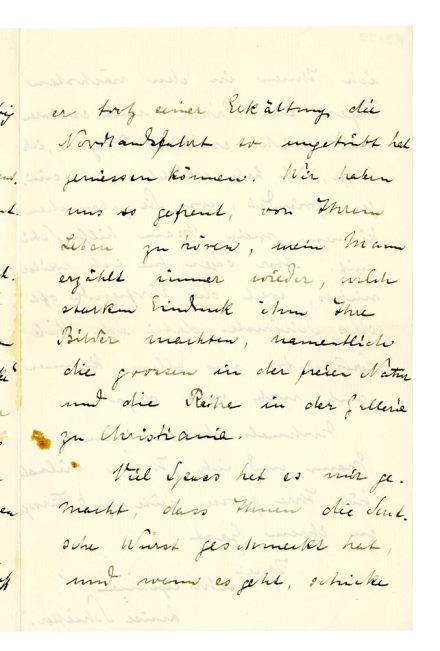 er trotz einer Erkältung die
Nordlandsfahrt so ungetrübt hat
geniessen können. Wir haben
uns so gefreut, von Ihrem
Leben zu hören, mein Mann
erzählt immer wieder, welch
starken Eindruck ihm Ihre
Bilder machten, namentlich
die grossen in der freien Natur
und die Reihe in der Gallerie
zu Christiania.
Viel Spass hat es mir ge-
macht, dass Ihnen die deut-
sche Wurst geschmeckt hat,
und wenn es geht, schicke